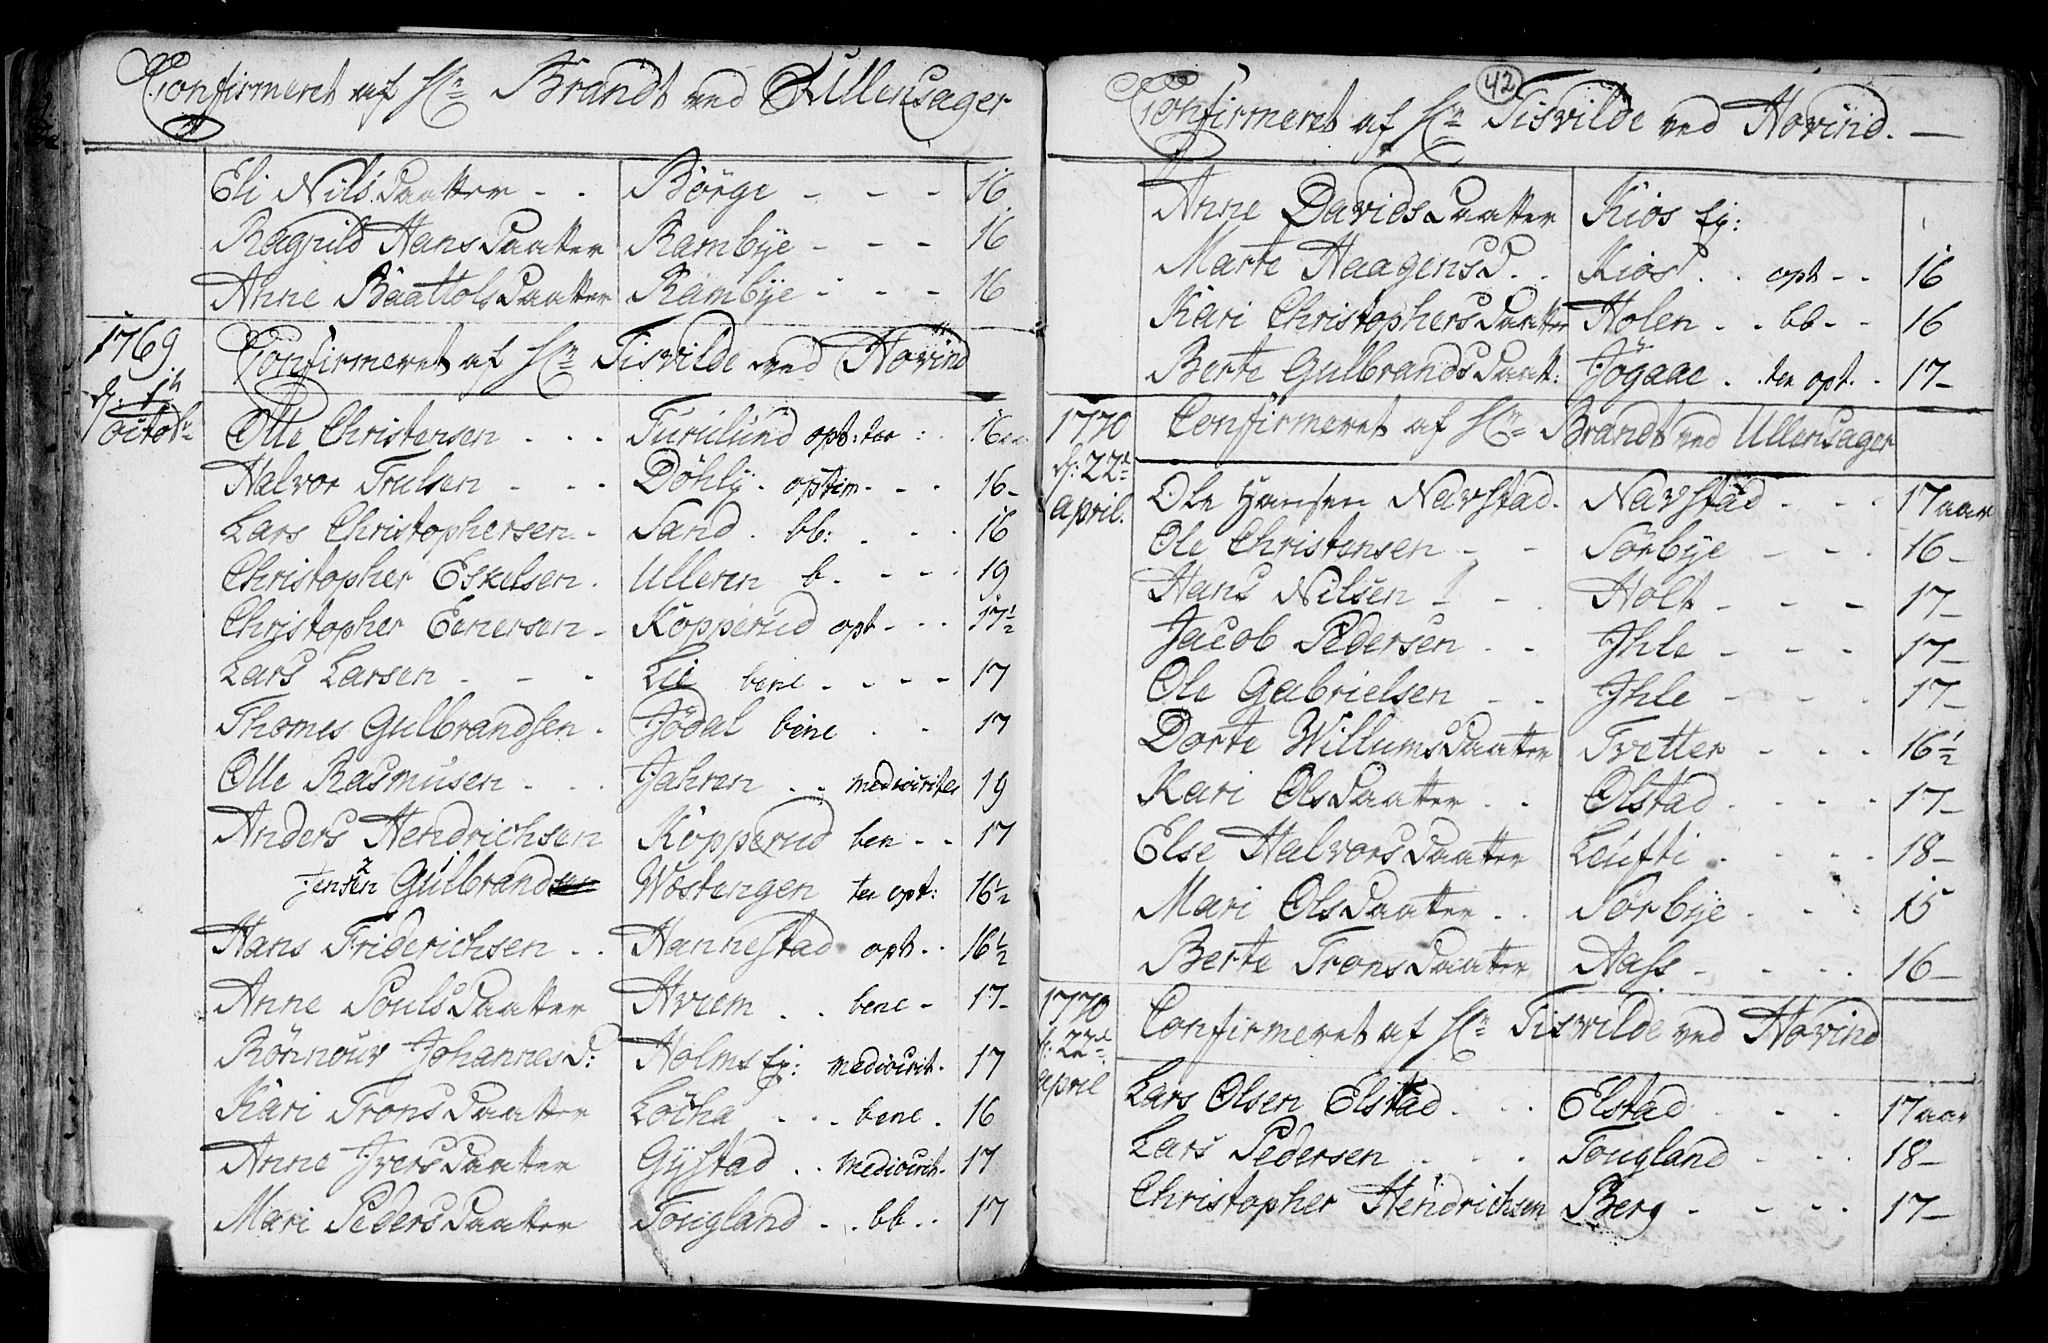 Confirmeret af Hr Brandt ved Ullensager
Eli Nils Daatter - - Börge - - - 16
Ragnild Hans Daatter Rambÿe - - - 16
Anne Baattols Daatter Rambÿe - - - 16
1769 Confirmeret af Hr Tisvilde ved Hovind
d. 1t octobr
Olle Christensen - - - Furulund opt: 16
Halvor Trulsen - - - Döhly. optim - - - 16-
Lars Christophersen - Sand. bb: - - - 16
Christopher Eskelsen. Ulleren b. - - - 19
Christopher Eenersen - Köpperud opt - - - 17½
Lars Larsen - - - Lie bene - - - - 17
Thomes Gulbrandsen. Jödal bene - - 17
Olle Rasmusen - - - Jahren - - mediocriter 19
Anders Hendrichsen Köpperud ben - - 17
Jensen 2 Gulbrand Wöstengen ter opt: 16½
Hans Friderichsen - - Hannestad opt - - 16½
Anne Pouls Daatter Hvem - - bene - 17-
Rönnouv Johannes D: Holms Ej: mediocrit. 17
Kari Trons Daatter Löcha - - - bene. 16
Anne Jvers Daatter Gÿstad - - mediocrit. 17
Mari Peders Daatter Tougland - - bb - - 17
42
Confirmeret af Hr Tisvilde ved Hovind. —
Anne Davids Daatter Kios Ej:
Marte Haagens D. - Kios - - opt - - 16
Kari Christophers Daatter Holen - - bb - - 16
Berte Gulbrands Daatt: Jögaae - ter opt. - 17-
1770 Confirmeret af Hr Brandt ved Ullensager
d: 22de april.
Ole Hansen Navstad. Navstad - - - 17 aar
Ole Christensen - - Sörbÿe - - - 16-
Hans Nilsen - - Holt - - - 17-
Jacob Pedersen - - Jhle - - - 17-
Ole Gabrielsen - - Jhle - - - 17-
Dorte Willums Daatter Tvetter - - - 16½
Kari Ols Daatter - - Olstad - - - - 17-
Else Halvors Daatter Leufti - - - - 18-
Mari Ols Daatter - - Sörbÿe - - - 15
Berte Trons Daatter Aass - - - - 16-
1770 Confirmeret af Hr Tisvilde ved Hovind
d: 22de april
Lars Olsen Elstad - - - Elstad - - - 17 aar
Lars Pedersen - - - Tougland - - - 18-
Christopher Hendrichsen Berg - - - - 17-